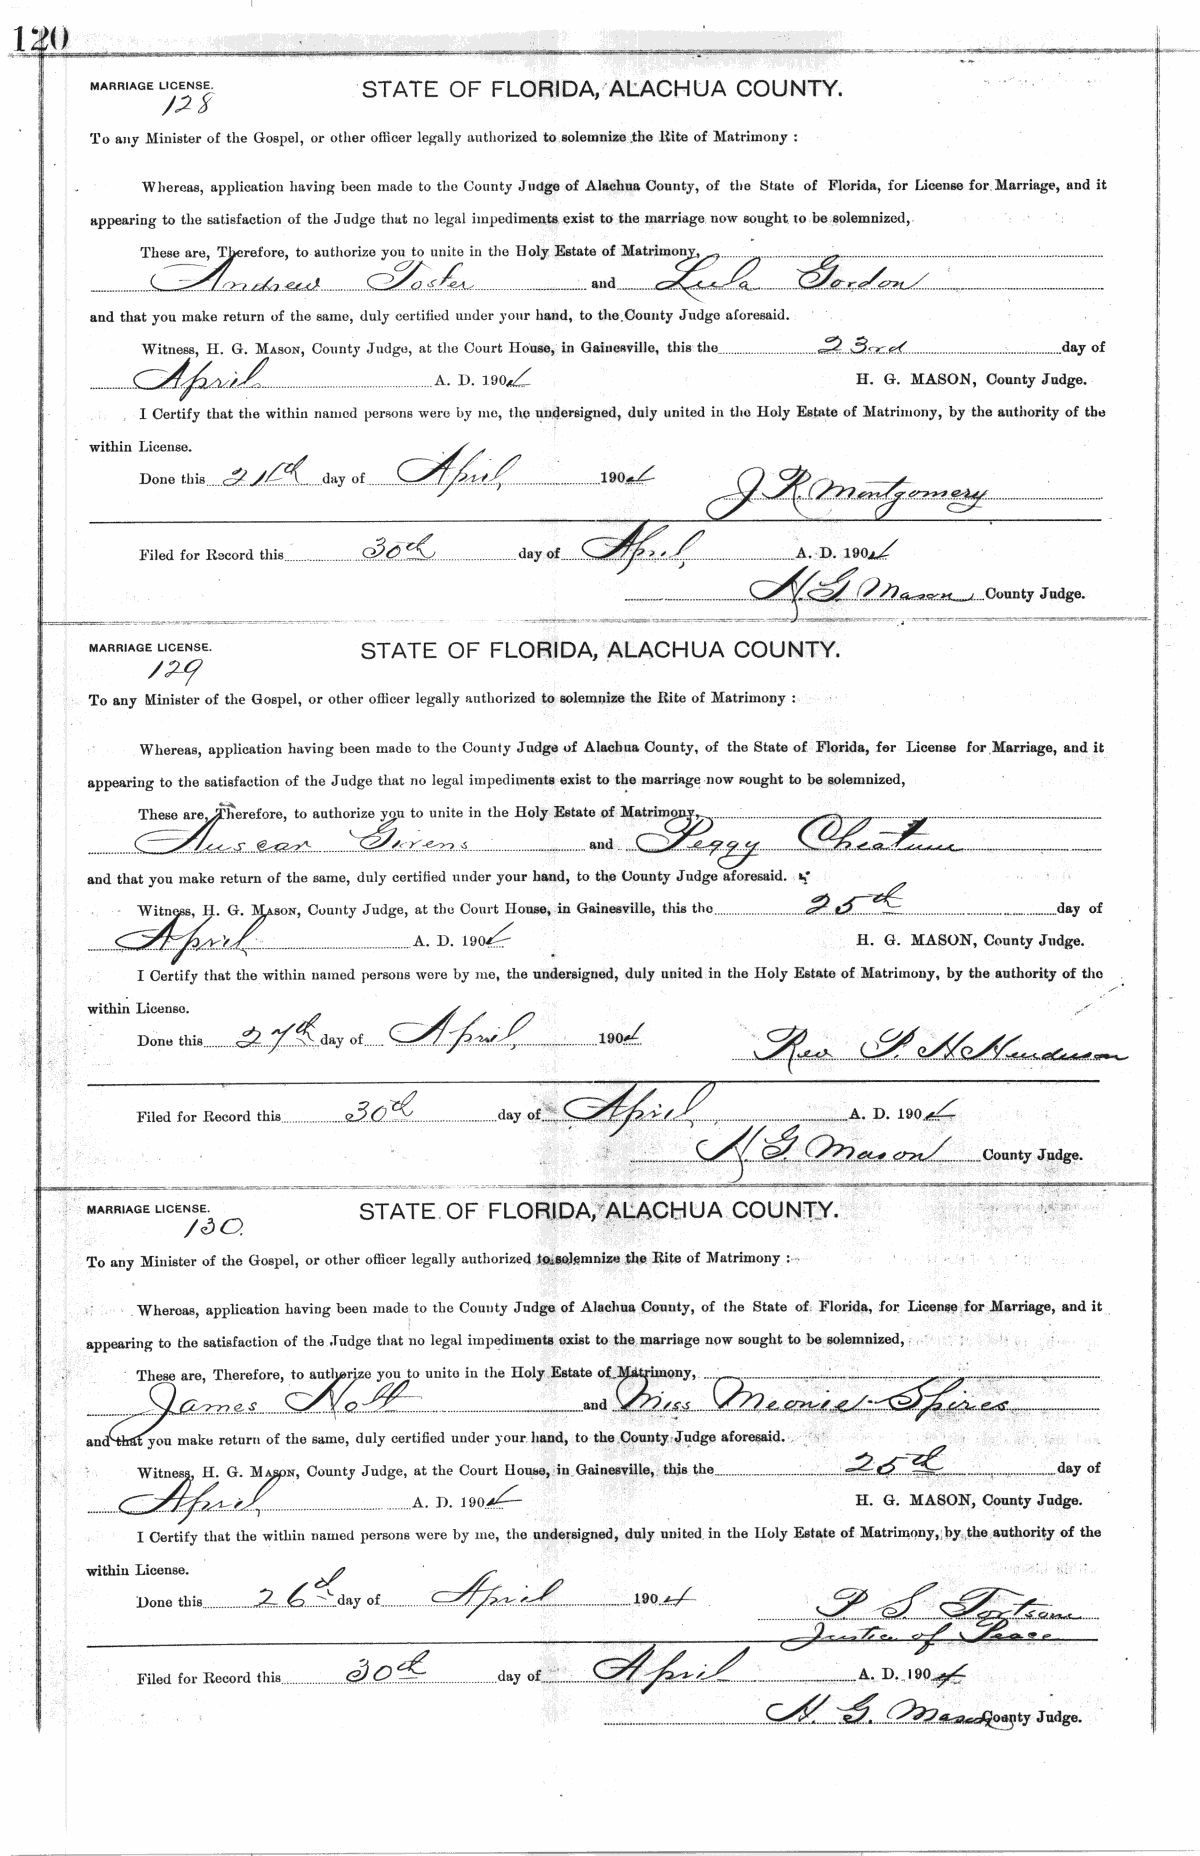 120
MARRIAGE LICENSE. STATE OF FLORIDA, ALACHUA COUNTY.
128
To any Minister of the Gospel, or other officer legally authorized to solemnize the Rite of Matrimony :
Whereas, application having been made to the County Judge of Alachua County, of the State of Florida, for License for Marriage, and it
appearing to the satisfaction of the Judge that no legal impediments exist to the marriage now sought to be solemnized,
These are, Therefore, to authorize you to unite in the Holy Estate of Matrimony,
Andrew Foster and Lula Gordon
and that you make return of the same, duly certified under your hand, to the County Judge aforesaid.
Witness, H. G. MASON, County Judge, at the Court House, in Gainesville, this the 23rd day of
April A. D. 1904 H. G. MASON, County Judge.
I Certify that the within named persons were by me, the undersigned, duly united in the Holy Estate of Matrimony, by the authority of the
within License.
Done this day of April, 1904 J R Montgomery
Filed for Record this 30th day of April, A. D. 1904
H. G. Mason County Judge.
MARRIAGE LICENSE. STATE OF FLORIDA, ALACHUA COUNTY.
129
To any Minister of the Gospel, or other officer legally authorized to solemnize the Rite of Matrimony :
Whereas, application having been made to the County Judge of Alachua County, of the State of Florida, for License for Marriage, and it
appearing to the satisfaction of the Judge that no legal impediments exist to the marriage now sought to be solemnized,
These are, Therefore, to authorize you to unite in the Holy Estate of Matrimony,
Auscar Givens and Peggy Cheatum
and that you make return of the same, duly certified under your hand, to the County Judge aforesaid.
Witness, H. G. MASON, County Judge, at the Court House, in Gainesville, this the 25th day of
April A. D. 1904 H. G. MASON, County Judge.
I Certify that the within named persons were by me, the undersigned, duly united in the Holy Estate of Matrimony, by the authority of the
within License.
Done this 27th day of April, 1904 Rev P. H Henderson
Filed for Record this 30th day of April, A. D. 1904
H. G. Mason County Judge.
MARRIAGE LICENSE. STATE OF FLORIDA, ALACHUA COUNTY.
130.
To any Minister of the Gospel, or other officer legally authorized to solemnize the Rite of Matrimony :
Whereas, application having been made to the County Judge of Alachua County, of the State of Florida, for License for Marriage, and it
appearing to the satisfaction of the Judge that no legal impediments exist to the marriage now sought to be solemnized,
These are, Therefore, to authorize you to unite in the Holy Estate of Matrimony,
James Holt and Miss Meonie Spires
and that you make return of the same, duly certified under your hand, to the County Judge aforesaid.
Witness, H. G. MASON, County Judge, at the Court House, in Gainesville, this the 25th day of
April, A. D. 1904 H. G. MASON, County Judge.
I Certify that the within named persons were by me, the undersigned, duly united in the Holy Estate of Matrimony, by the authority of the
within License.
Done this 26th day of April 1904 P. S. Fortson
Justice of Peace
Filed for Record this 30th day of April A. D. 1904
H. G. Mason County Judge.